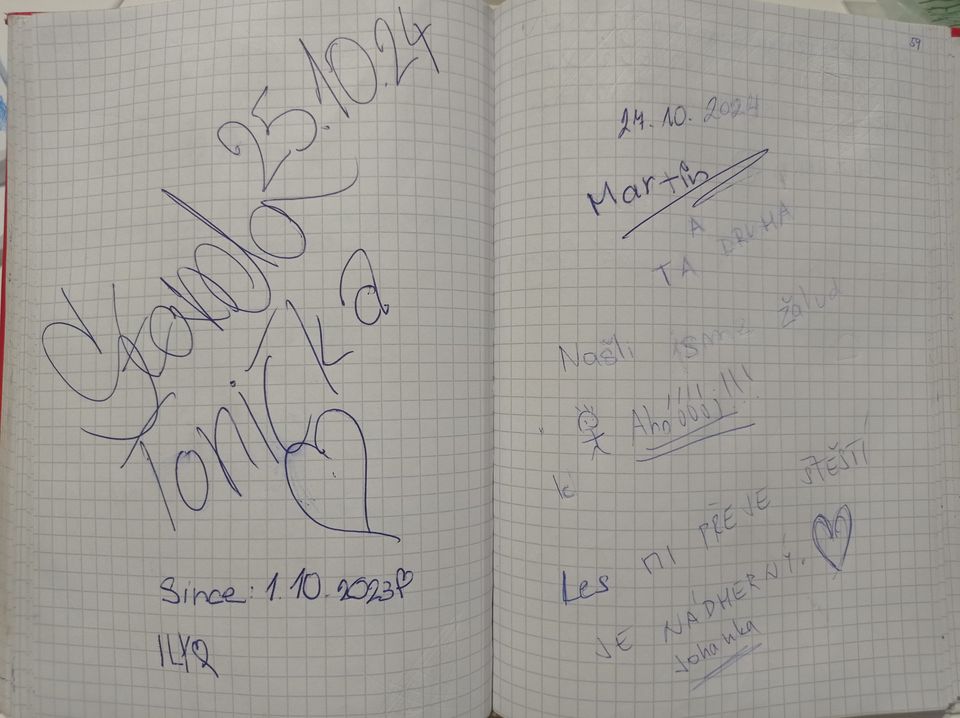 25.10.24
Tonička
Since: 1.10.2023
59
27.10.2024
Martin
A
TA DRUHÁ
Našli jsme žalud
Ahóóóój!!!
k
Les MI PŘEJE ŠTĚSTÍ
JE NÁDHERNÝ.
Johanka